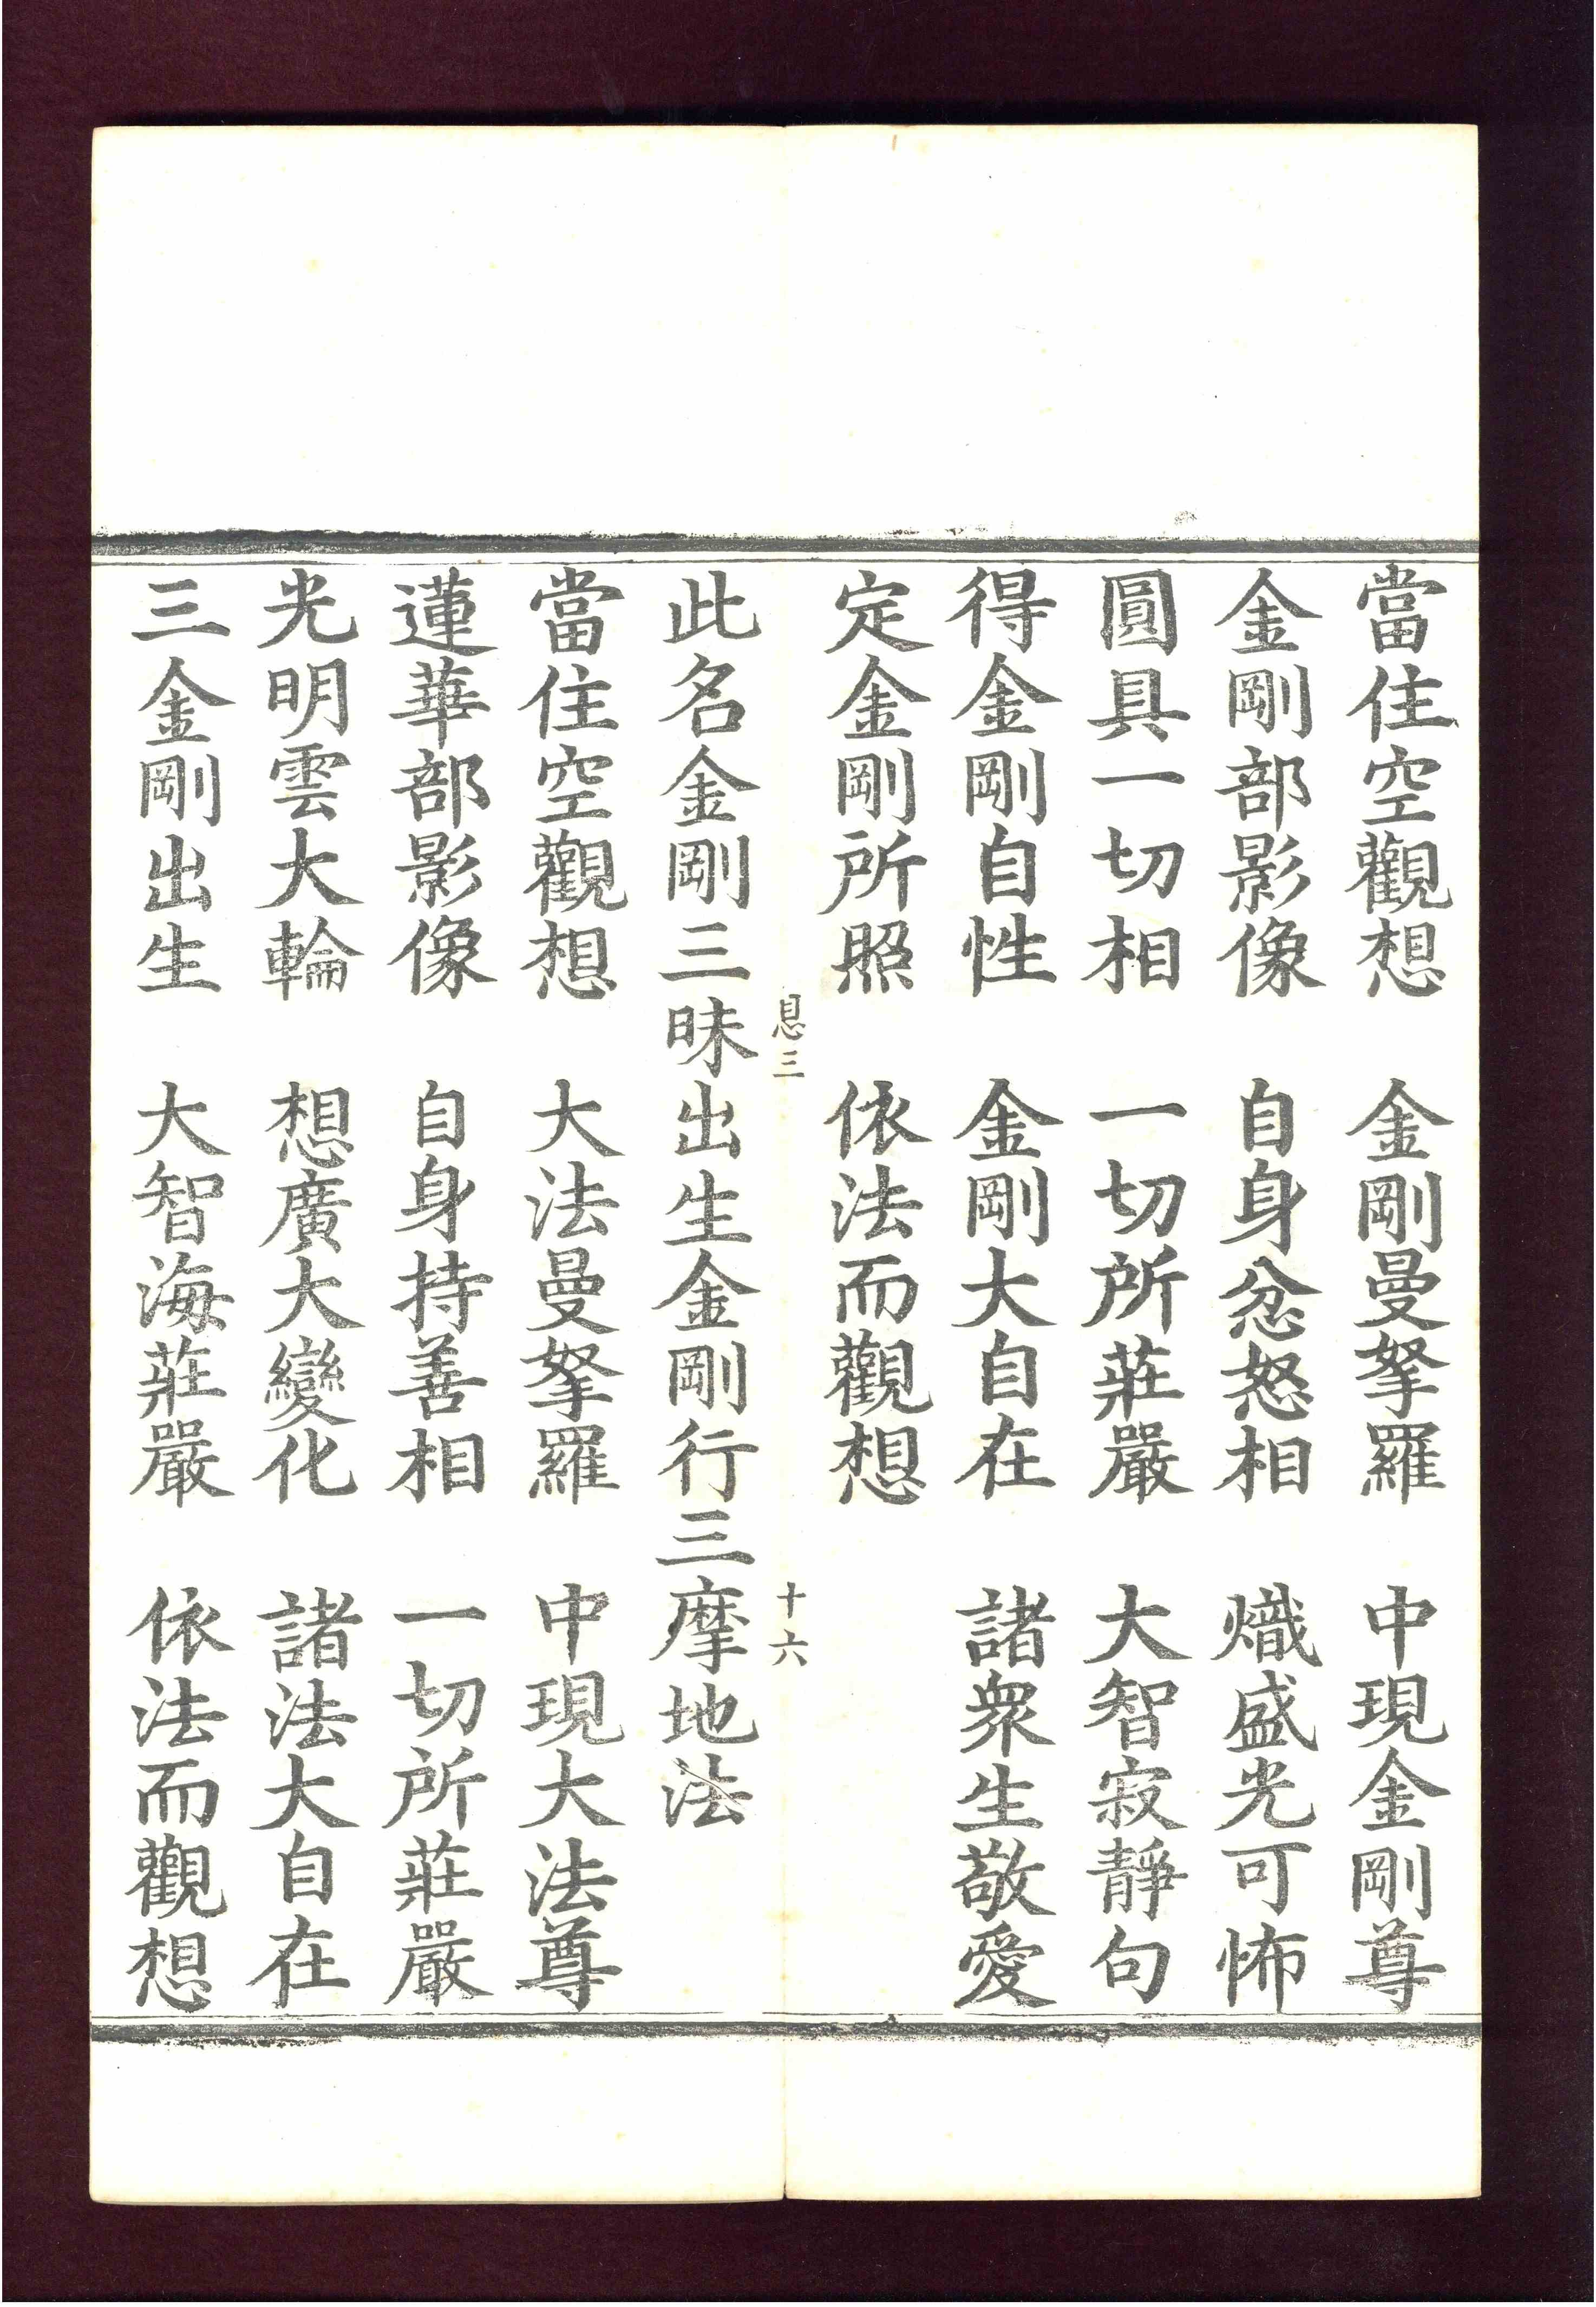 當住空觀想　金剛曼拏羅　中現金剛尊
金剛部影像　自身忿怒相　熾盛光可怖
圓具一切相　一切所莊嚴　大智寂靜句
得金剛自性　金剛大自在　諸衆生敬愛
定金剛所照　依法而觀想
息三　十六
此名金剛三昧出生金剛行三摩地法
當住空觀想　大法曼拏羅　中現大法尊
蓮華部影像　自身持善相　一切所莊嚴
光明雲大輪　想廣大變化　諸法大自在
三金剛出生　大智海莊嚴　依法而觀想